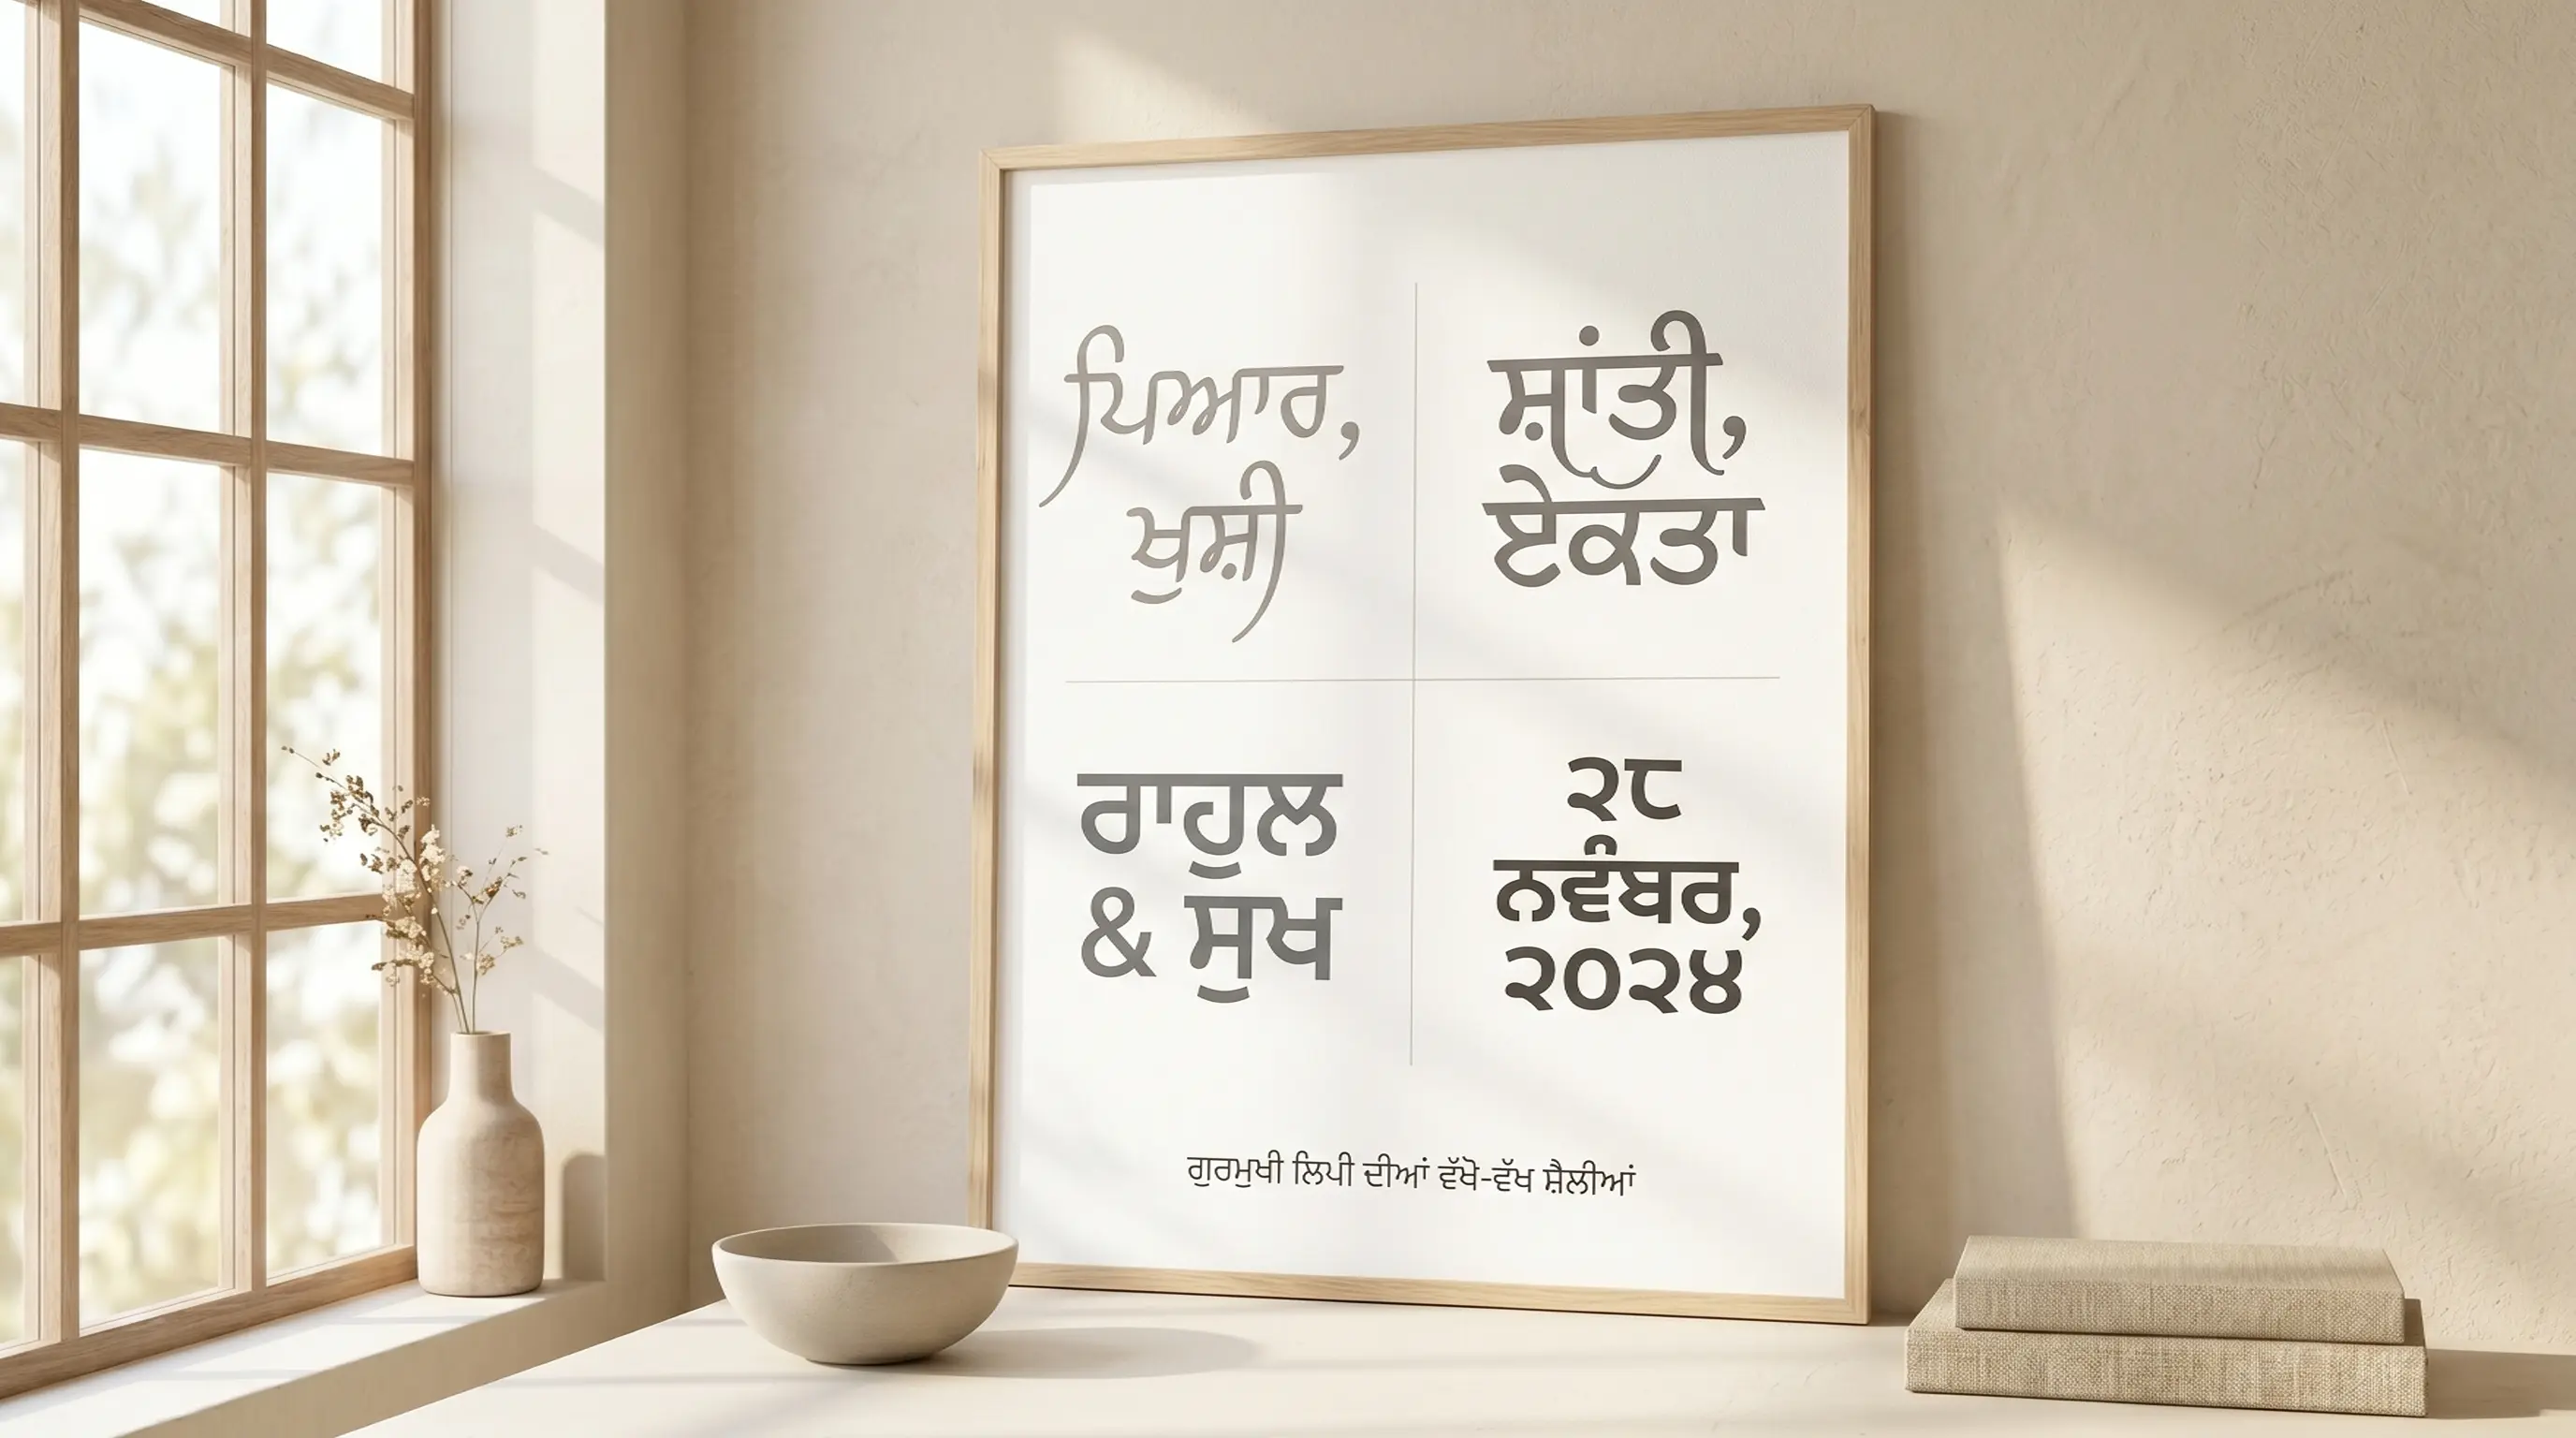 ਪਿਆਰ,
ਖੁਸ਼ੀ
ਸ਼ਾਂਤੀ,
ਏਕਤਾ
ਰਾਹੁਲ
& ਸੁਖ
੨੮
ਨਵੰਬਰ,
੨੦੨੪
ਗੁਰਮੁਖੀ ਲਿਪੀ ਦੀਆਂ ਵੱਖੋ-ਵੱਖ ਸ਼ੈਲੀਆਂ